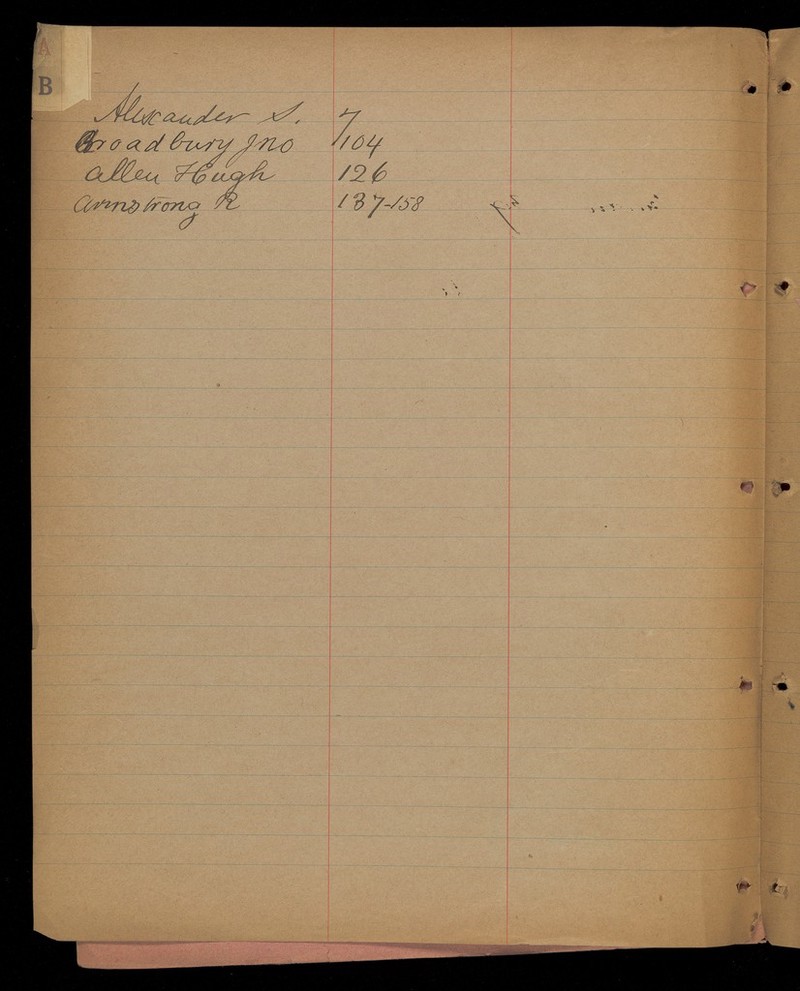 A
B
Alexander S. 7
Broadbury Jno 104
Allen Hugh 126
Armstrong R 137-158